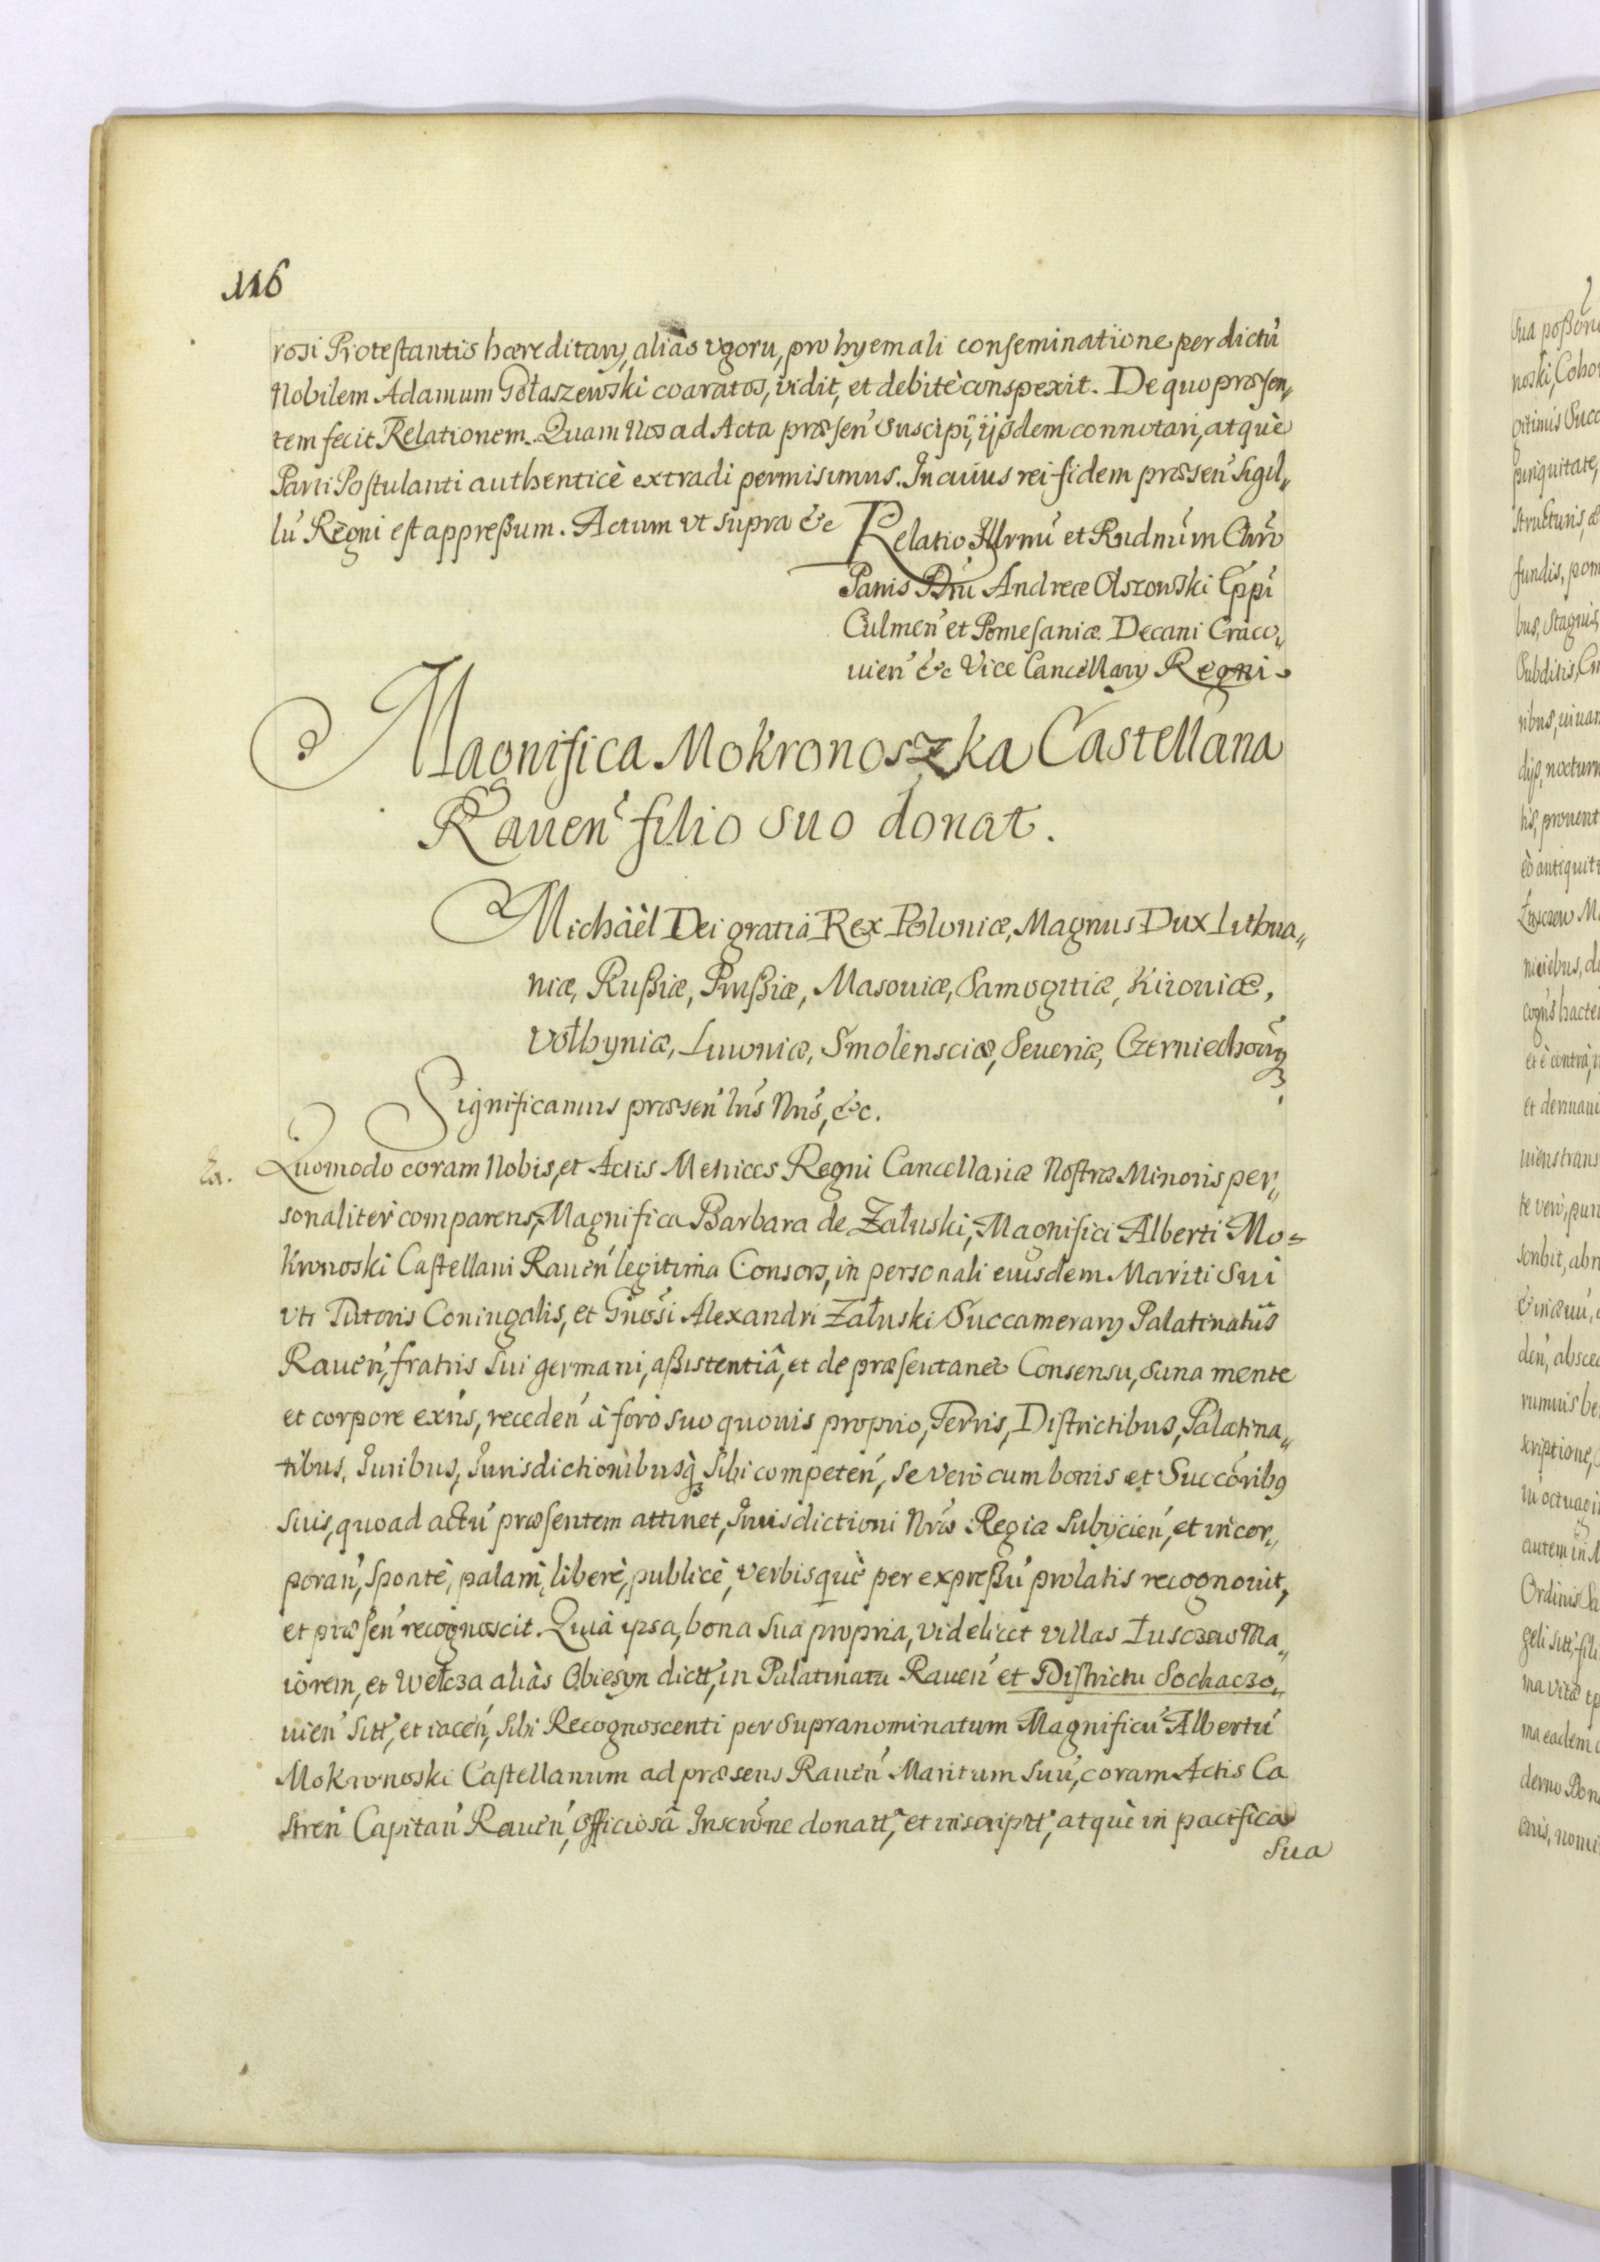 116
rosi Protestantis hæreditary, aliàs vgoru, pro hyemali conseminatione per dictu'
Nobilem Adamum Gołaszewski coaratos, vidit, et debitè conspexit. De quo præsen„
tem fecit Relationem. Quam Nos ad Acta præsen' suscipi, ijsdem connotari, atquè
Parti Postulanti authenticè extradi permisimus. In cuius rei fidem præsen' Sigil„
lu' Regni est appreßum. Actum vt supra &c
Relatio Illrmi et Rndmi in Chro
Panis Dni Andreæ Olszowski Eppi
Culmen' et Pomesaniæ Decani Craco„
uien' &c Vice Cancellary Regni.
Magnifica Mokronoszka Castellana
Rauen' filio suo donat.
Michäël Dei gratiâ Rex Poloniæ, Magnus Dux Lithua„
niæ, Rußiæ, Prußiæ, Masouiæ, Samogitiæ, Kiiouiæ,
Volhyniæ, Liuoniæ, Smolensciæ, Seueriæ, Czerniechouiæq3.
Significamus præsen' lris Nris, &c.
Quomodo coram Nobis, et Actis Metrices Regni Cancellariæ Nostræ Minoris per„
sonaliter comparens, Magnifica Barbara de Załuski, Magnifici Alberti Mo=
kronoski Castellani Rauen' legitima Consors, in personali eiusdem Mariti Sui
vti Tutoris Coniugalis, et Gnosi Alexandri Załuski Succamerary Palatinatûs
Rauen', fratris Sui germani, aßistentiâ, et de præsentaneo Consensu, sana mente
et corpore exn's, receden' à foro suo quouis proprio, Terris, Districtibus, Palatina„
tibus, Iuribus, Iurisdictionibusq3 Sibi competen', se vero cum bonis et Succorib9
Suis, quoad actu' præsentem attinet, Iurisdictioni Nræ Regiæ Subijcien', et incor„
poran', Sponte, palam, liberè, publicè, verbisquè per expreßu' prolatis recognouit,
et præsen' recognoscit. Quia ipsa, bona Sua propria, videlicet villas Tusczew Ma„
iorem, et Wełcza aliàs Obiesyn dictt', in Palatinatu Rauen' et Districtu Sochaczo„
uien' sitt', et iacen', Sibi Recognoscenti per supranominatum Magnificu' Albertu'
Mokronoski Castellanum ad præsens Rauen' Maritum Suu', coram Actis Ca
stren' Capitan' Rauen', officiosâ Inscrone donatt', et inscriptt', atquè in pacifica
Sua